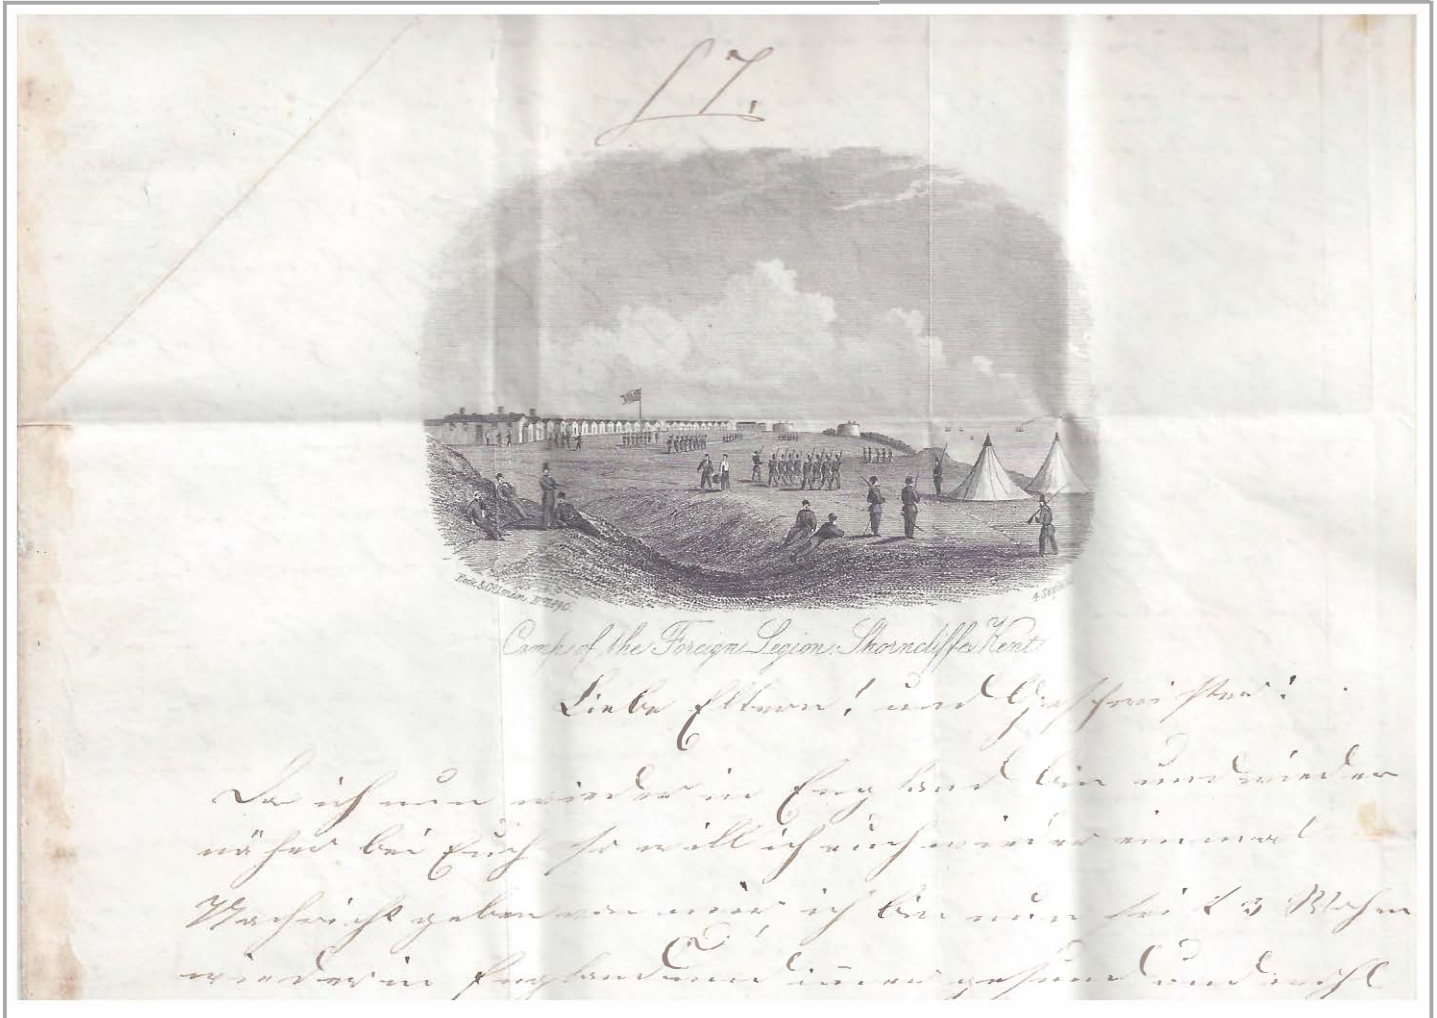 L 7.
Camp of the Foreign Legion, Shorncliffe Kent
Liebe Eltern! und Geschwister!
Da ich nun wieder in England bin und wieder
näher bei Euch so will ich euch wieder einmal
Nachricht geben von mir ich bin nun seit 3 Wochen
wieder in England und immer gesund und